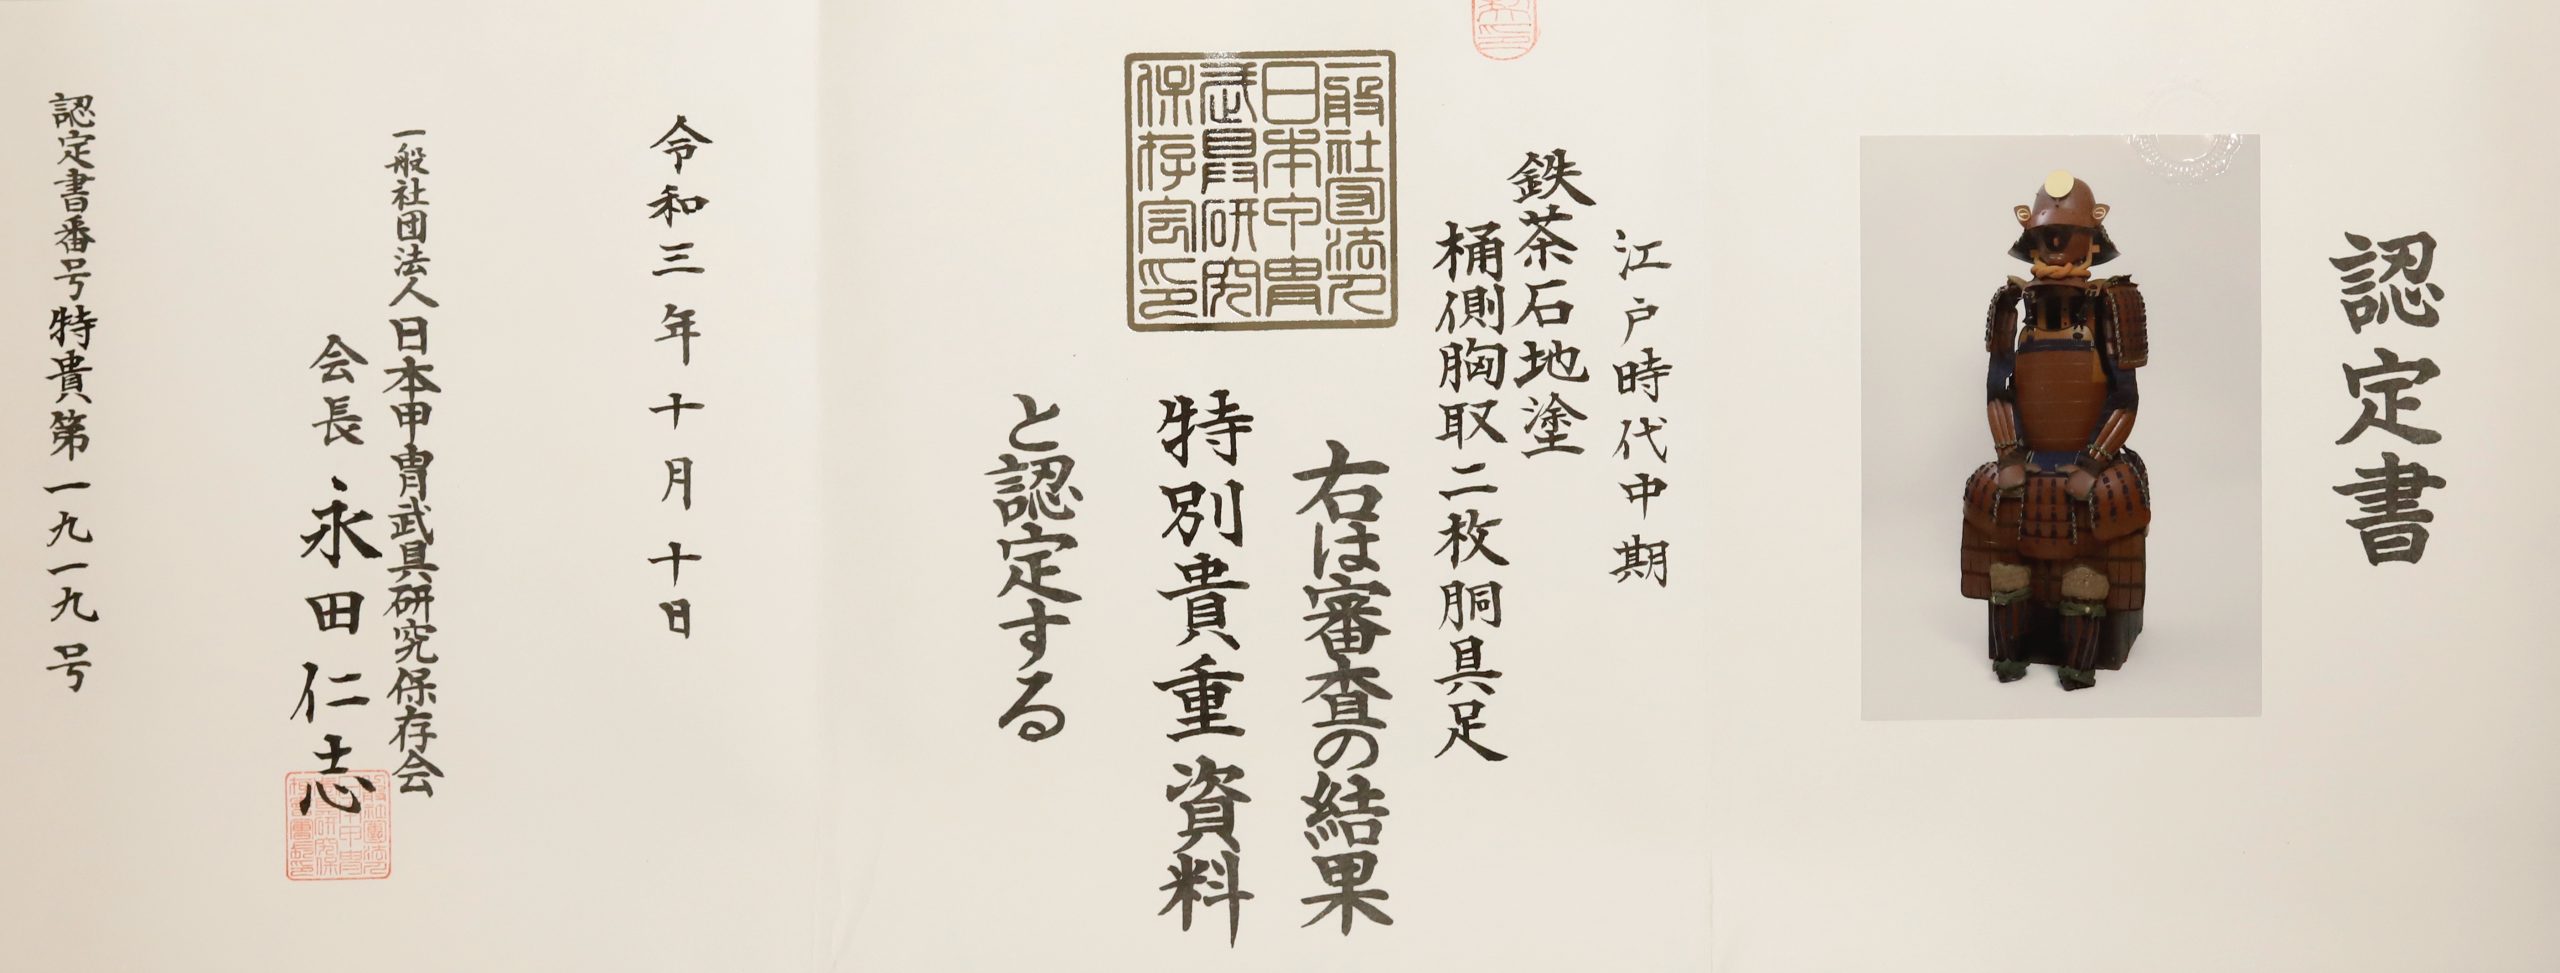 認定書
江戸時代中期
鉄茶石地塗
桶側胸取二枚胴具足
右は審査の結果
特別貴重資料
と認定する
一般社団法人
日本甲冑
武具研究
保存会印
令和三年十月十日
一般社団法人日本甲冑武具研究保存会
会長 永田仁志
認定書番号特貴第一九一九号